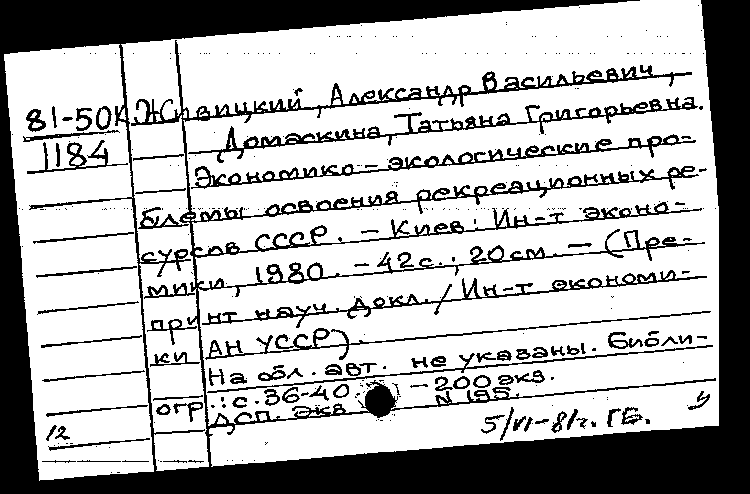 81-50К. Живицкий, Александр Васильевич,
1184 Домаскина, Татьяна Григорьевна.
Экономико-экологические про-
блемы освоения рекреационных ре-
сурсов СССР. - Киев: Ин-т эконо-
мики, 1980. - 42 с.; 20 см. - (Пре-
принт науч. докл./Ин-т экономи-
ки АН УССР).
На обл. авт. не указаны. Библи-
огр.: с. 36-40 - 200 экз.
ДСП. Экз. N 195.
12 5/VI-81г. ГБ.